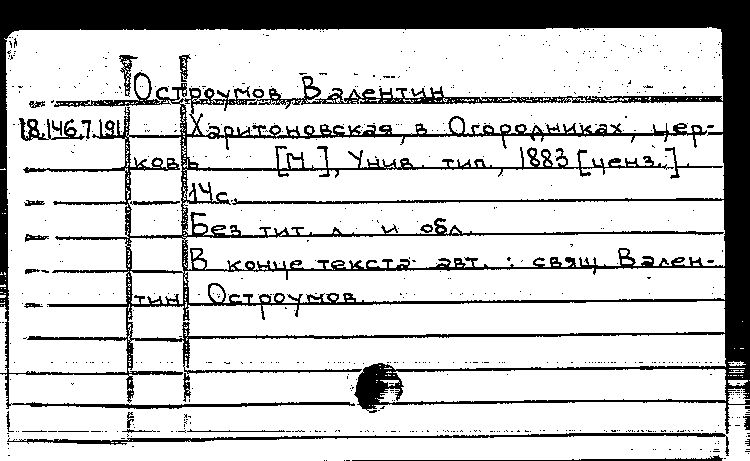 Остроумов, Валентин
18.146.7.191 Харитоновская, в Огородниках, цер-
ковь [М.], Унив. тип., 1883 [ценз.].
14с.
Без тит. л. и обл.
В конце текста авт.: свящ. Вален-
тин Остроумов.